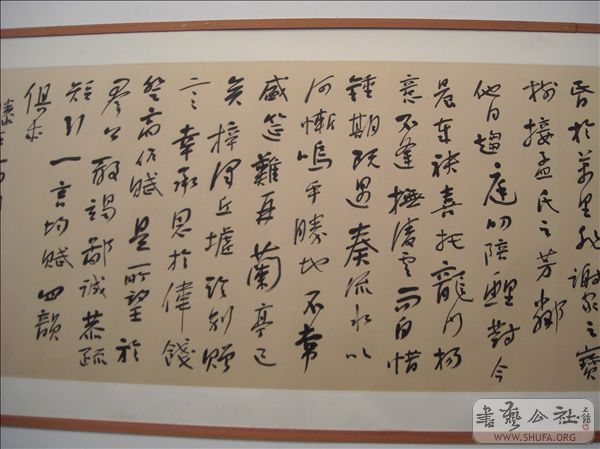 昏於萬里非謝家之寶
樹接孟氏之芳鄰
他日趨庭叨陪鯉對今
晨奉袂喜托龍門楊
意不逢撫凌雲而自惜
鍾期既遇奏流水以
何慚嗚乎勝地不常
盛筵難再蘭亭已
矣梓澤丘墟臨別贈
言幸承恩於偉餞
登高作賦是所望於
群公敢竭鄙誠恭疏
短引一言均賦四韻
俱成
書藝公社
WWW.SHUFA.ORG